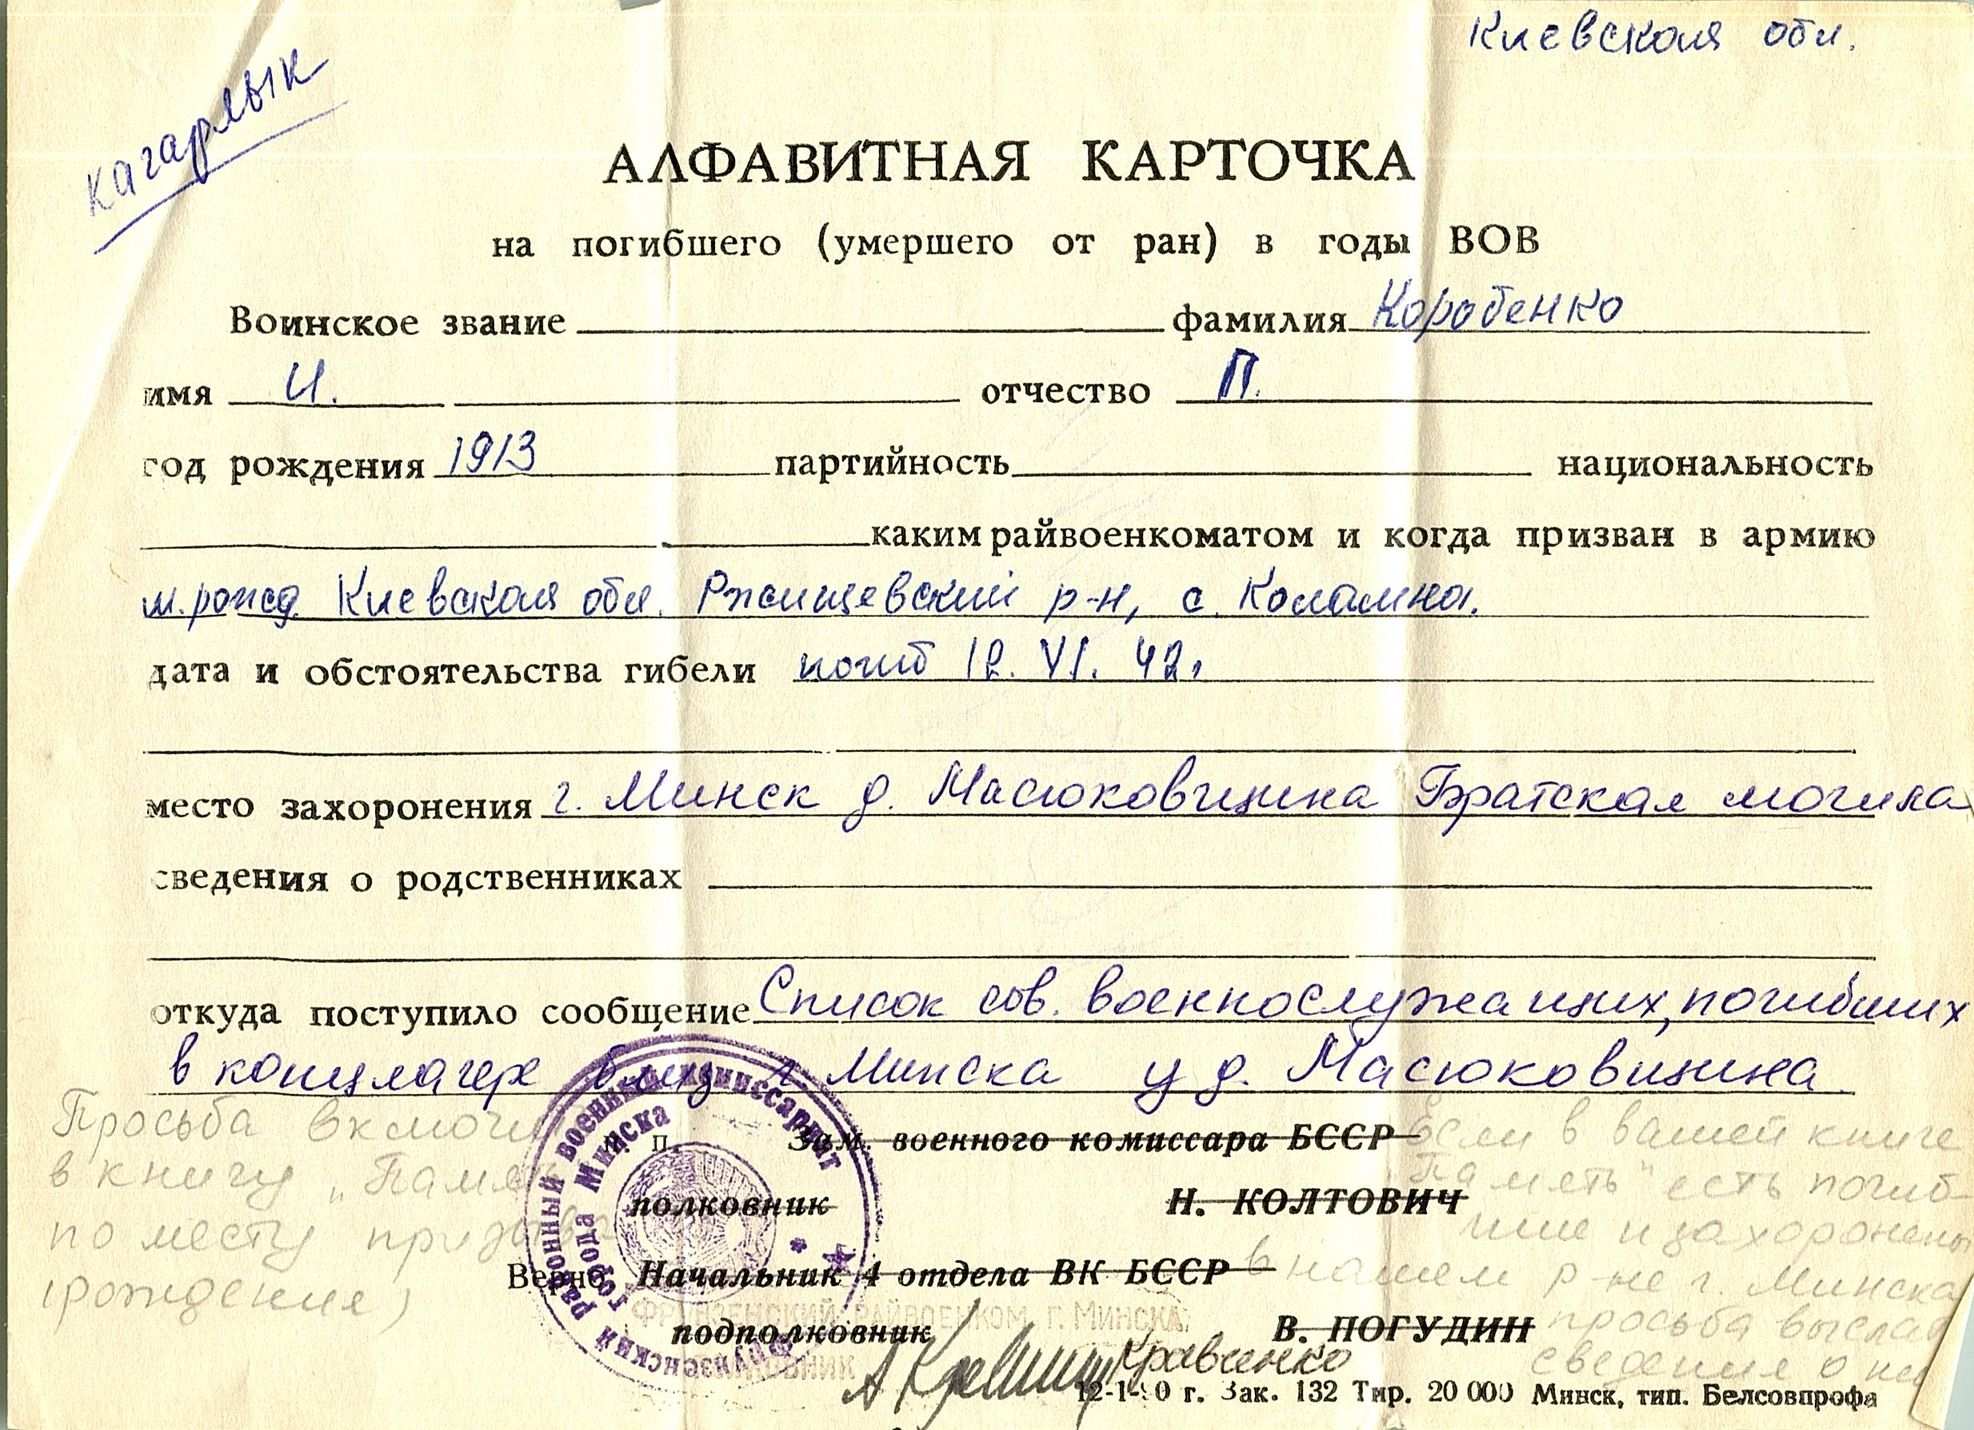 Киевская обл.
Кагарлык
АЛФАВИТНАЯ КАРТОЧКА
на погибшего (умершего от ран) в годы ВОВ
Воинское звание фамилия Коробенко
имя И. отчество П.
год рождения 1913 партийность национальность
каким райвоенкоматом и когда призван в армию
м. рожд. Киевская обл. Ржищевский р-н, с.
дата и обстоятельства гибели погиб 12. VI. 42г
место захоронения г. Минск д. Масюковщина Братская могила
сведения о родственниках
откуда поступило сообщение Список сов. военнослужащих, погибших
в концлагере близ г. Минска у д. Масюковщина
Просьба включи
в книгу „Память
по месту призыва
(рождения)
м. п.
Зам. военного комиссара БССР
полковник Н. КОЛТОВИЧ
Верно: Начальник 4 отдела ВК БССР
подполковник В. ПОГУДИН
Фрунзенский районный военный комиссариат
города Минска
ФРУНЗЕНСКИЙ РАЙВОЕНКОМ, Г. МИНСКА
Кравченко
Если в вашей книге
"Память" есть погиб-
шие и захоронены
в нашем р-не г. Минска
просьба выслать
сведения о них
12-1-90 г. Зак. 132 Тир. 20 000 Минск, тип. Белсовпрофа